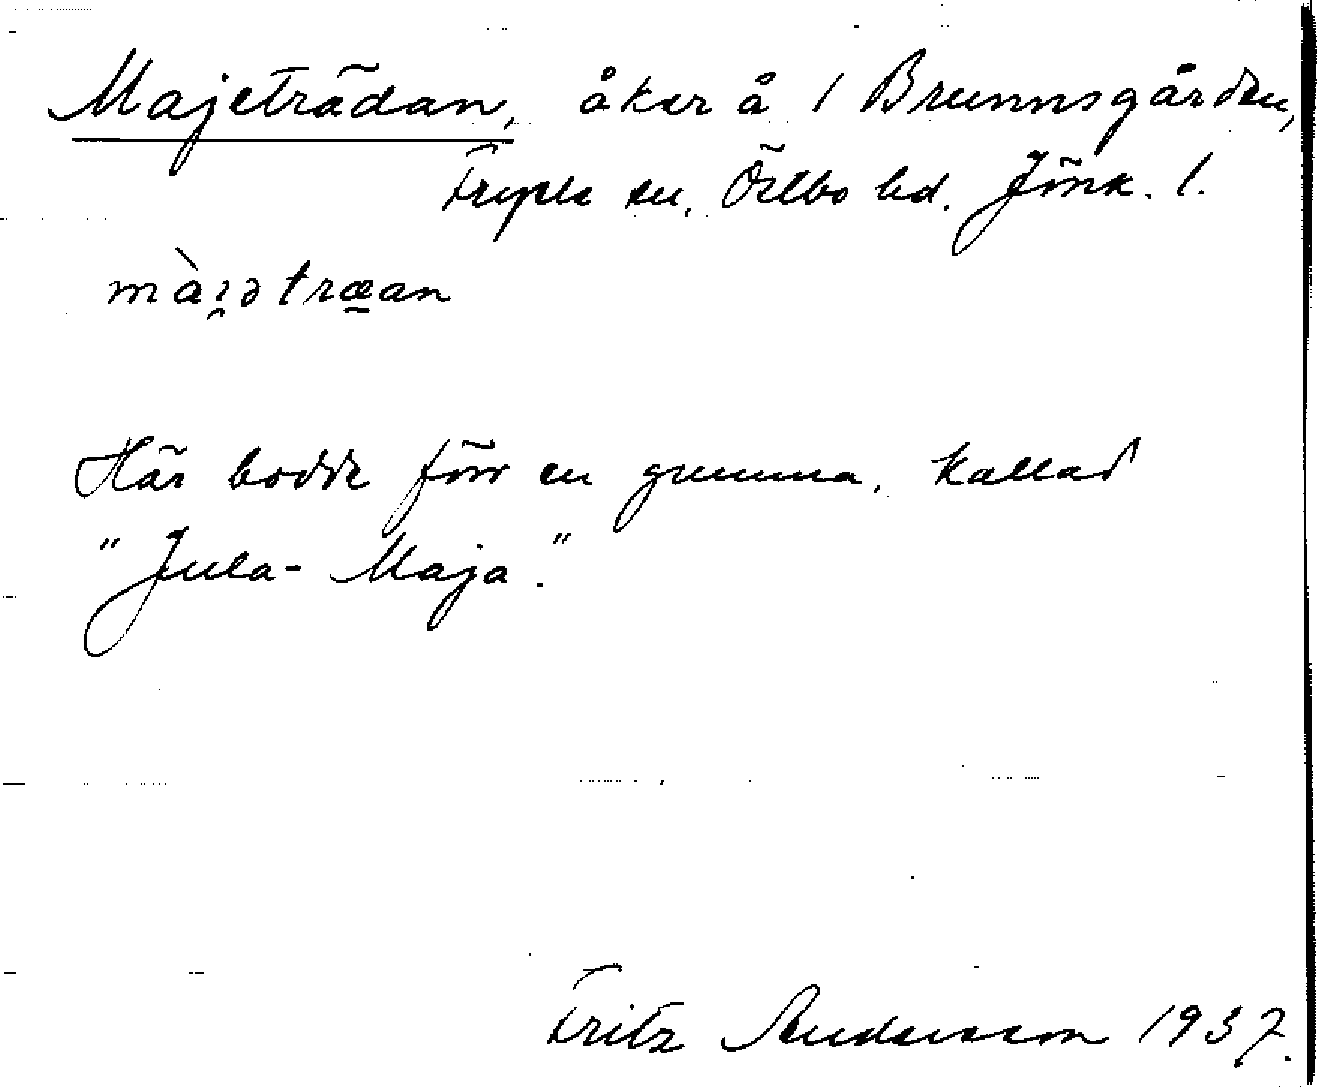 Majeträdan, åker å 1 Brunnsgården,
Fryele sn, Östbo hd. Jönk. l.
màı̯ətræ̱an
Här bodde förr en gumma, kallad
"Jula-Maja."
Fritz Andersson 1937.